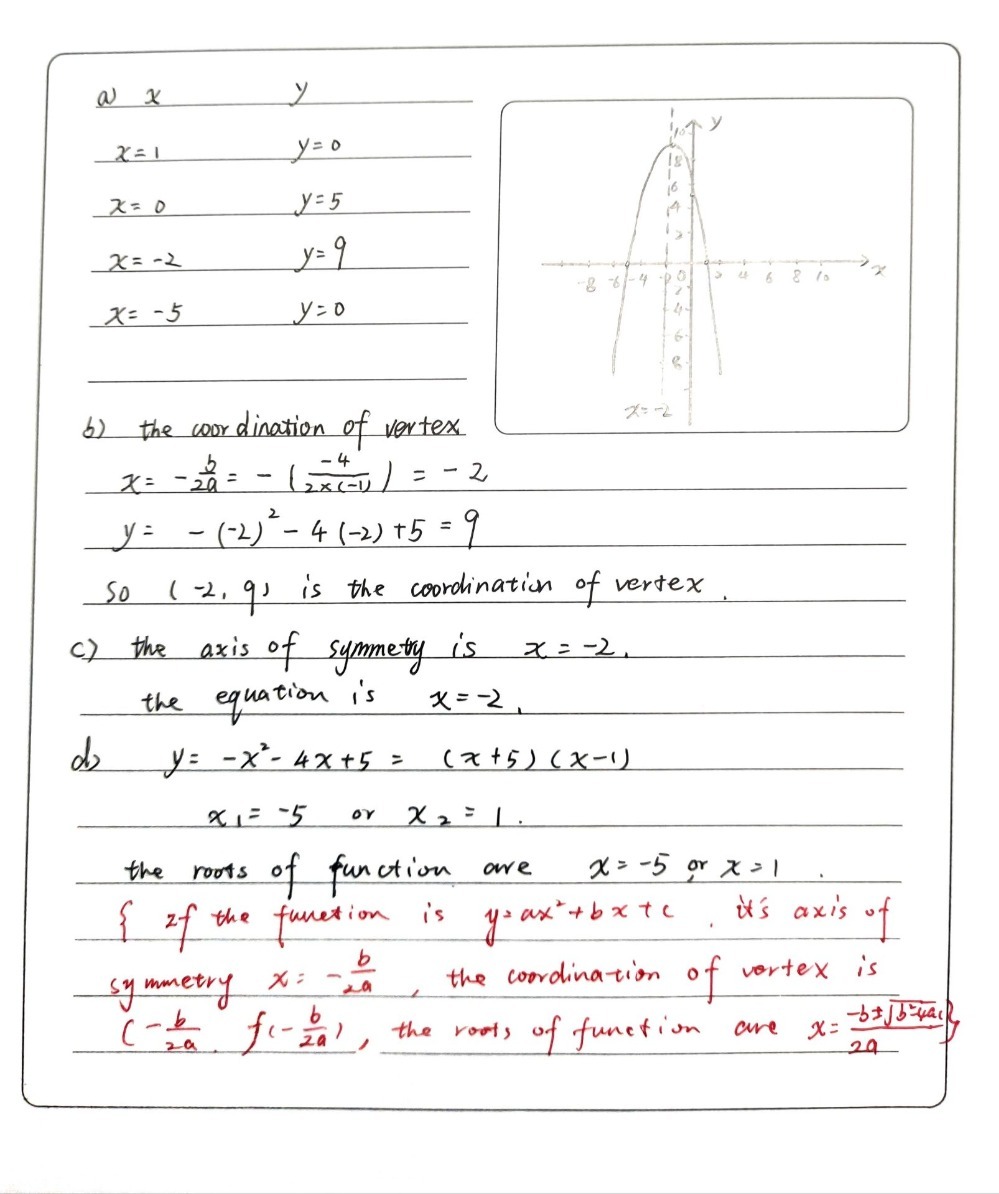 a) x y
x=1 y=0
x=0 y=5
x=-2 y=9
x=-5 y=0
y
10
8
6
4
2
-8 -6 -4 -2 0 2 4 6 8 10 x
2
4
6
8
x=-2
b) the coordination of vertex
x= -b/2a = -(-4/2×(-1)) = -2
y= -(-2)² - 4(-2)+5 = 9
So (-2, 9) is the coordination of vertex.
c) the axis of symmetry is x=-2.
the equation is x=-2.
d) y= -x²-4x+5 = (x+5)(x-1)
x₁=-5 or x₂=1.
the roots of function are x=-5 or x=1.
{ If the function is y=ax²+bx+c, it's axis of
symmetry x= -b/2a, the coordination of vertex is
(-b/2a, f(-b/2a), the roots of function are x= -b±√b²-4ac/2a}